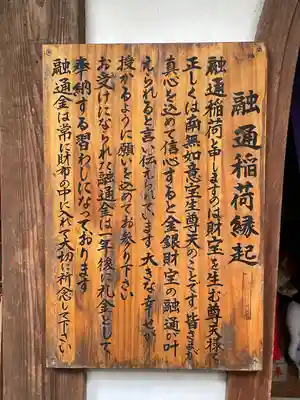 融通稲荷縁起
融通稲荷と申しますのは財宝を生む尊天様で
正しくは南無如意宝生尊天のことです 皆さまが
真心を込めて信心すると金銀財宝の融通が叶
えられると言い伝えられています 大きな幸せが
授かるように願いを込めてお参り下さい
お受けになられた融通金は一年後に礼金として
奉納する習わしになっております
融通金は常に財布の中に入れて大切に祈念して下さい